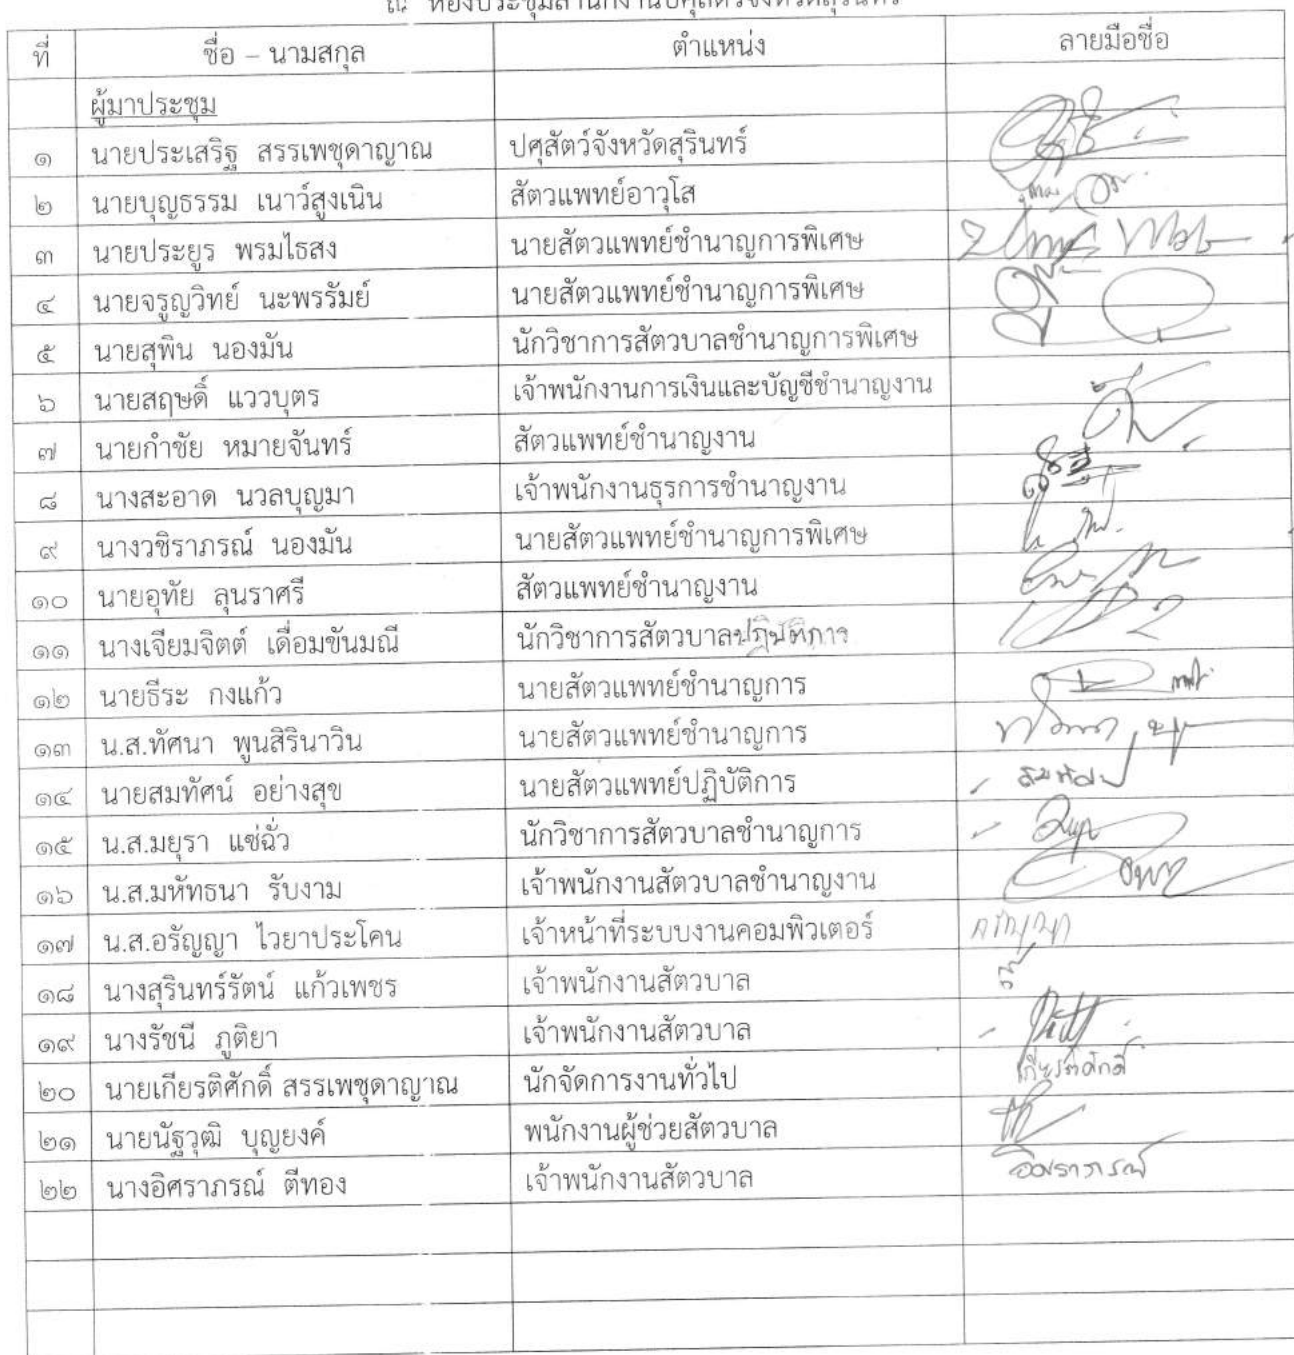 ณ ห้องประชุมสำนักงานปศุสัตว์จังหวัดสุรินทร์
ที่ ชื่อ – นามสกุล ตำแหน่ง ลายมือชื่อ
ผู้มาประชุม
๑ นายประเสริฐ สรรเพชุดาญาณ ปศุสัตว์จังหวัดสุรินทร์
๒ นายบุญธรรม เนาว์สูงเนิน สัตวแพทย์อาวุโส
๓ นายประยูร พรมไธสง นายสัตวแพทย์ชำนาญการพิเศษ
๔ นายจรูญวิทย์ นะพรรัมย์ นายสัตวแพทย์ชำนาญการพิเศษ
๕ นายสุพิน นองมัน นักวิชาการสัตวบาลชำนาญการพิเศษ
๖ นายสฤษดิ์ แววบุตร เจ้าพนักงานการเงินและบัญชีชำนาญงาน
๗ นายกำชัย หมายจันทร์ สัตวแพทย์ชำนาญงาน
๘ นางสะอาด นวลบุญมา เจ้าพนักงานธุรการชำนาญงาน
๙ นางวชิราภรณ์ นองมัน นายสัตวแพทย์ชำนาญการพิเศษ
๑๐ นายอุทัย ลุนราศรี สัตวแพทย์ชำนาญงาน
๑๑ นางเจียมจิตต์ เดื่อมขันมณี นักวิชาการสัตวบาลปฏิบัติการ
๑๒ นายธีระ กงแก้ว นายสัตวแพทย์ชำนาญการ
๑๓ น.ส.ทัศนา พูนสิรินาวิน นายสัตวแพทย์ชำนาญการ
๑๔ นายสมทัศน์ อย่างสุข นายสัตวแพทย์ปฏิบัติการ
๑๕ น.ส.มยุรา แซ่ฉั่ว นักวิชาการสัตวบาลชำนาญการ
๑๖ น.ส.มหัทธนา รับงาม เจ้าพนักงานสัตวบาลชำนาญงาน
๑๗ น.ส.อรัญญา ไวยาประโคน เจ้าหน้าที่ระบบงานคอมพิวเตอร์
๑๘ นางสุรินทร์รัตน์ แก้วเพชร เจ้าพนักงานสัตวบาล
๑๙ นางรัชนี ภูติยา เจ้าพนักงานสัตวบาล
๒๐ นายเกียรติศักดิ์ สรรเพชุดาญาณ นักจัดการงานทั่วไป เกียรติศักดิ์
๒๑ นายนัฐวุฒิ บุญยงค์ พนักงานผู้ช่วยสัตวบาล
๒๒ นางอิศราภรณ์ ตีทอง เจ้าพนักงานสัตวบาล อิศราภรณ์